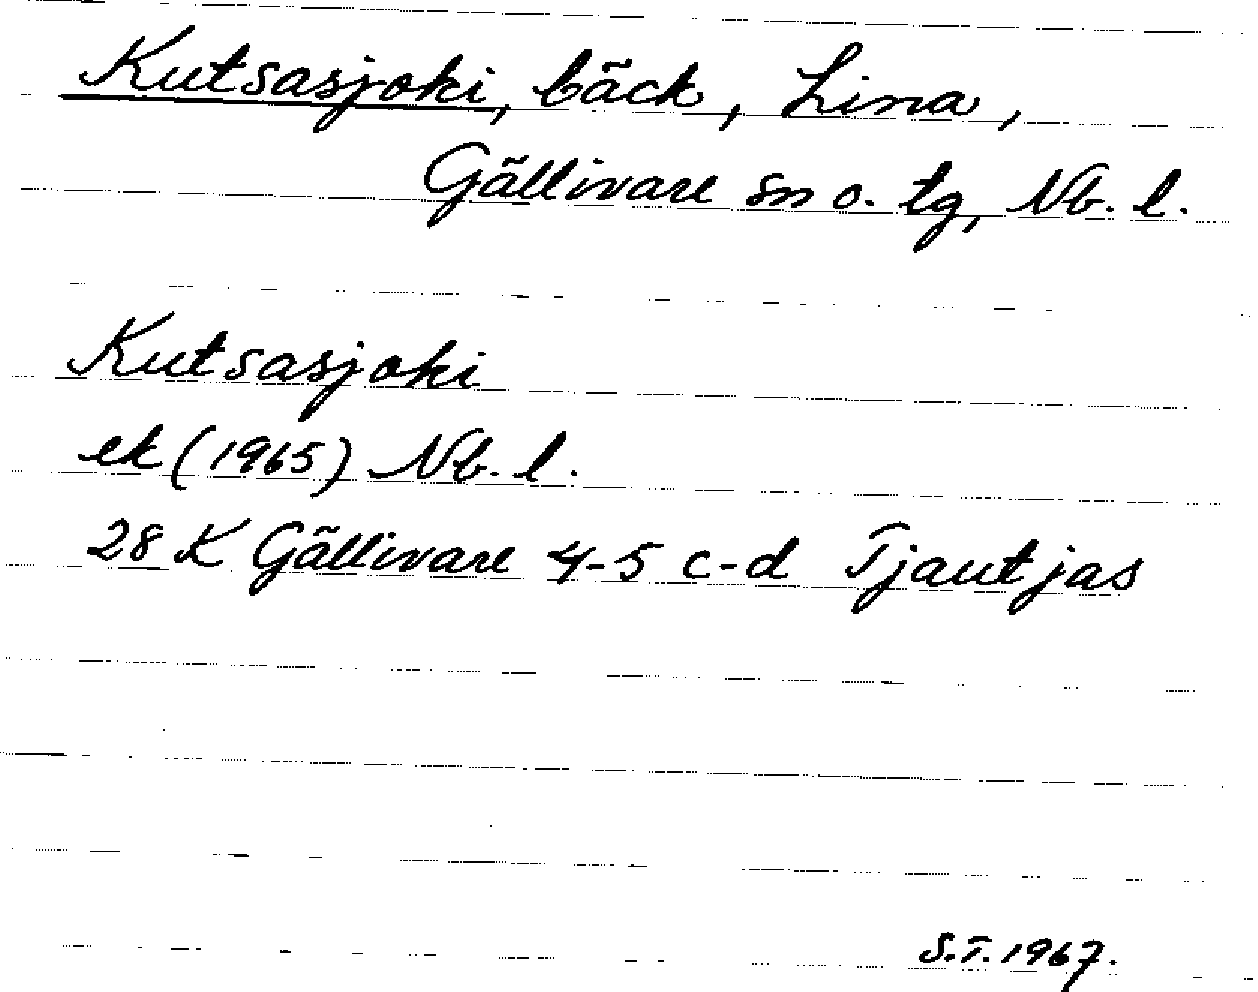 Kutsasjoki, bäck, Lina,
Gällivare sn o. tg, Nb. l.
Kutsasjoki
ek (1965) Nb. l.
28 K Gällivare 4-5 c-d Tjautjas
S.T. 1967.